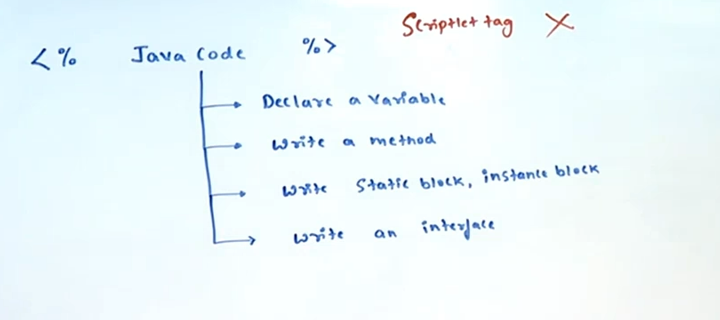 Scriptlet tag X
<% Java Code %>
Declare a variable
Write a method
Write Static block, instance block
Write an interface